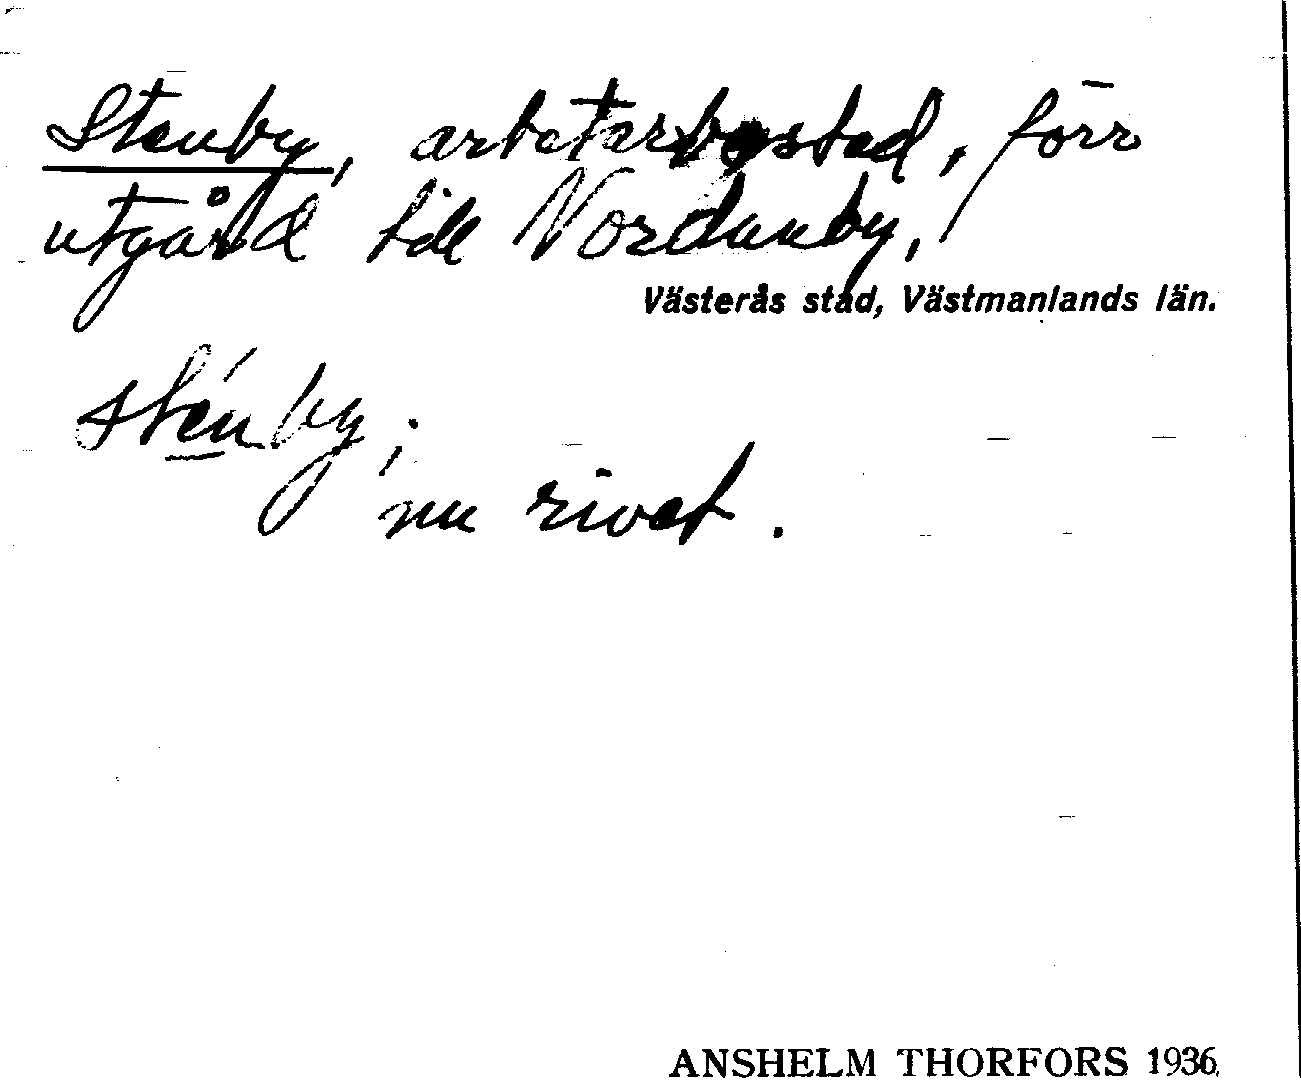 Stenby, arbetarbostad, förr
utgård till Nordanby,
Västerås stad, Västmanlands län.
stenby;
nu rivet.
ANSHELM THORFORS 1936.